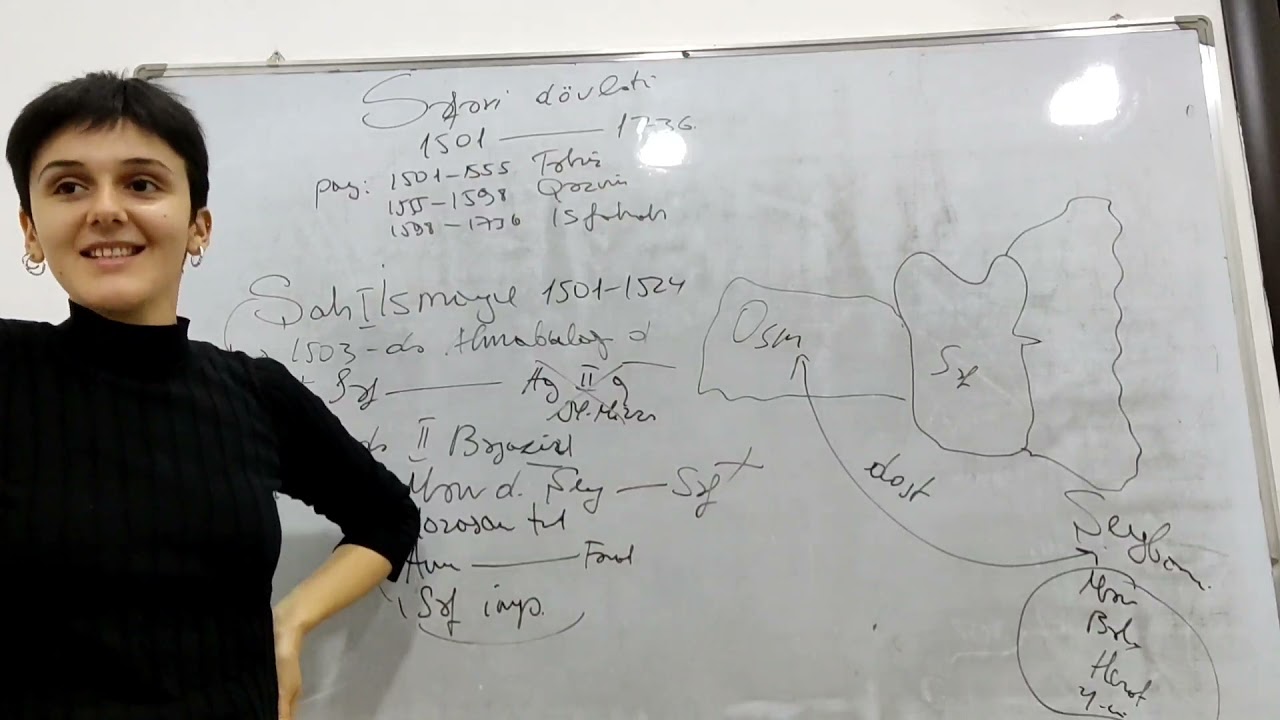 Səfəvi dövləti
1501 — 1736
pay: 1501-1555 Təbriz
1555-1598 Qəzvin
1598-1736 Isfahan
Şah I İsmayıl 1501-1524
1503-də Almabulağ d
Səf — Ağ II q
II Bəyazid
Mərv d. Şey — Səf
Xorasan tut
Amu — Fərat
Səf imp.
Osm
Səf
dost
Şeyban
Mərv
Bəlx
Herat